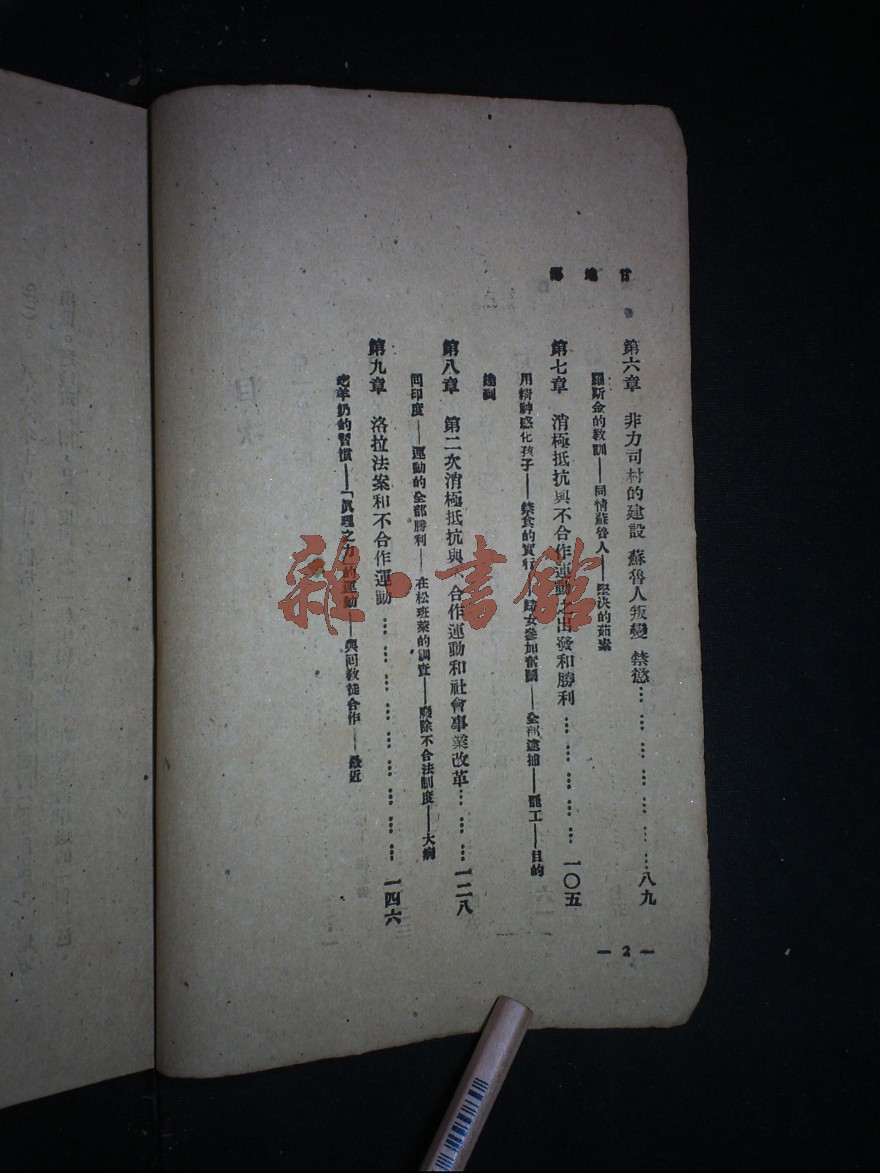 甘地傳
第六章　非力司村的建設　蘇魯人叛變　禁慾……………………八九
羅斯金的教訓——同情蘇魯人——堅決的茹素
第七章　消極抵抗與不合作運動之出發和勝利………………一〇五
用精神感化孩子——禁食的實行——婦女參加奮鬭——全部逮捕——罷工——目的
達到
第八章　第二次消極抵抗與不合作運動和社會事業改革………一二八
回印度——運動的全部勝利——在松班萊的調查——廢除不合法制度——大病
第九章　洛拉法案和不合作運動……………………一四六
吃羊奶的習慣——「眞理之力」的運動——與回教徒合作——最近
— 2 —
雜·書館